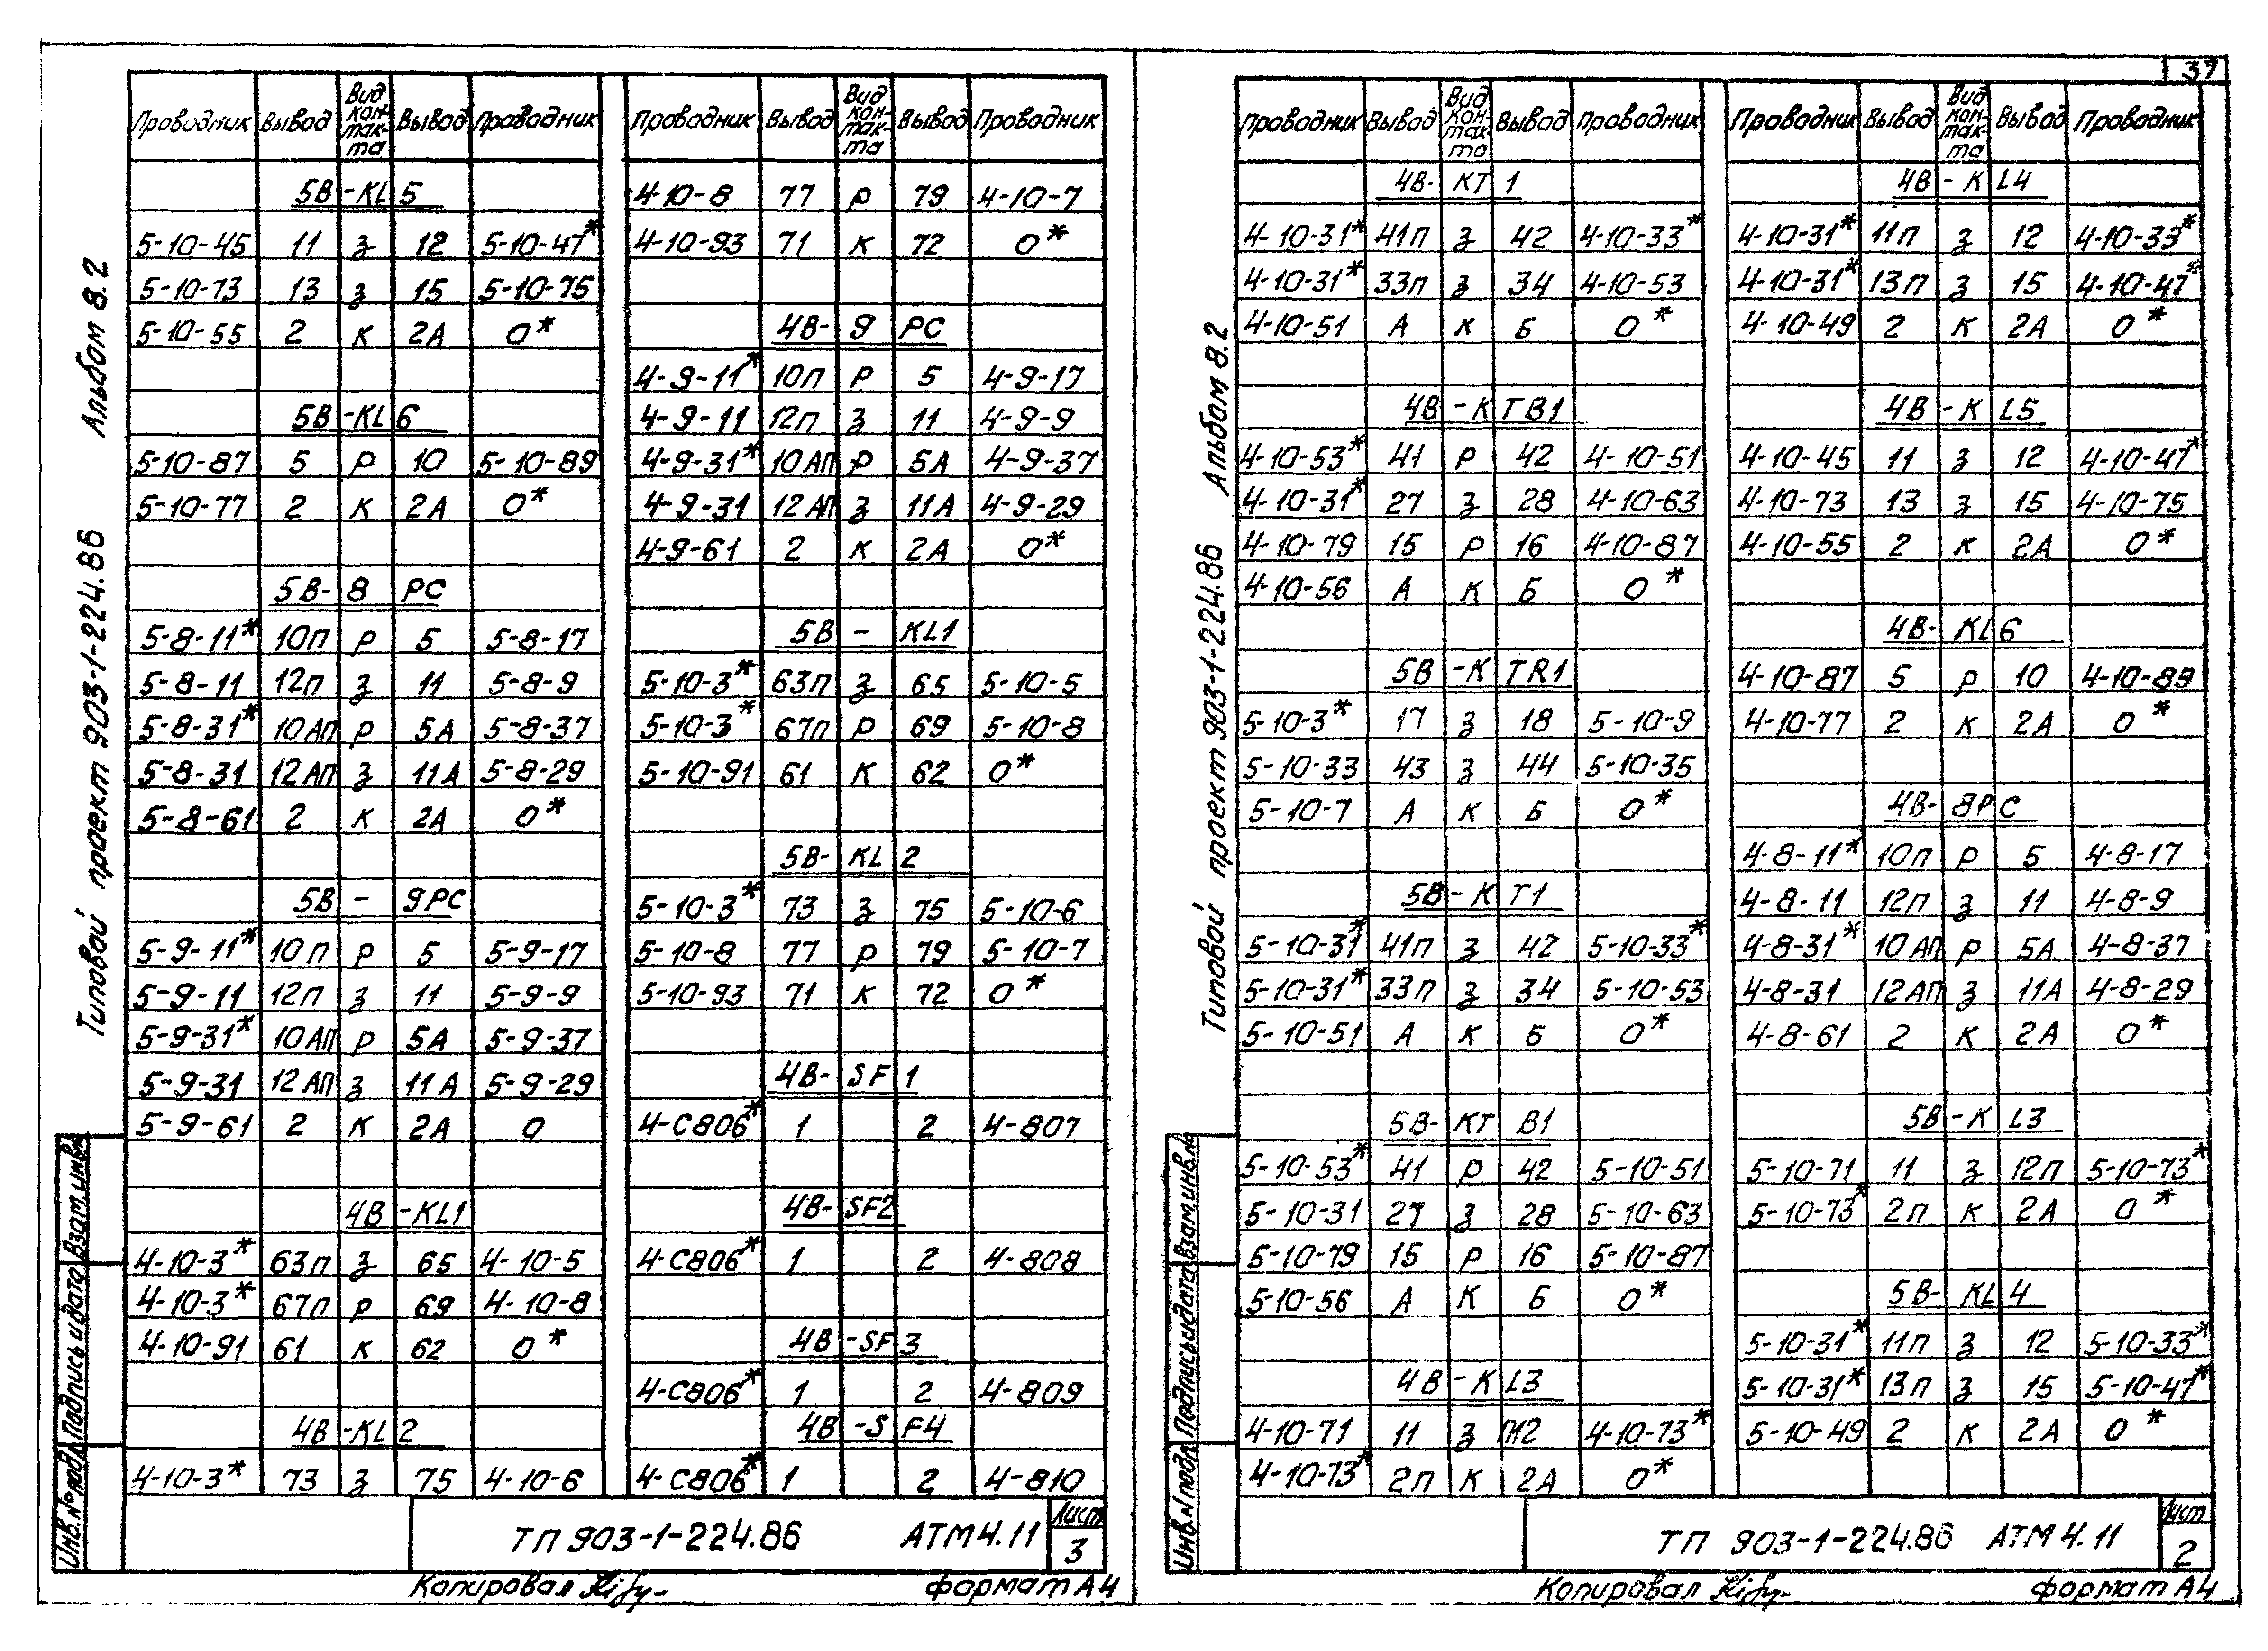 37
Альбом 8.2
Типовой проект 903-1-224.86
Проводник Вывод Вид контакта Вывод Проводник
5В-KL5
5-10-45 11 з 12 5-10-47*
5-10-73 13 з 15 5-10-75
5-10-55 2 к 2А 0*
5В-KL6
5-10-87 5 р 10 5-10-89
5-10-77 2 к 2А 0*
5В-8РС
5-8-11* 10п р 5 5-8-17
5-8-11 12п з 11 5-8-9
5-8-31* 10АП р 5А 5-8-37
5-8-31 12АП з 11А 5-8-29
5-8-61 2 к 2А 0*
5В-9РС
5-9-11* 10п р 5 5-9-17
5-9-11 12п з 11 5-9-9
5-9-31* 10АП р 5А 5-9-37
5-9-31 12АП з 11А 5-9-29
5-9-61 2 к 2А 0
4В-KL1
4-10-3* 63п з 65 4-10-5
4-10-3* 67п р 69 4-10-8
4-10-91 61 к 62 0*
4В-KL2
4-10-3* 73 з 75 4-10-6
Проводник Вывод Вид контакта Вывод Проводник
4-10-8 77 р 79 4-10-7
4-10-93 71 к 72 0*
4В-9РС
4-9-11* 10п р 5 4-9-17
4-9-11 12п з 11 4-9-9
4-9-31* 10АП р 5А 4-9-37
4-9-31 12АП з 11А 4-9-29
4-9-61 2 к 2А 0*
5В-KL1
5-10-3* 63п з 65 5-10-5
5-10-3* 67п р 69 5-10-8
5-10-91 61 к 62 0*
5В-KL2
5-10-3* 73 з 75 5-10-6
5-10-8 77 р 79 5-10-7
5-10-93 71 к 72 0*
4В-SF1
4-С806* 1 2 4-807
4В-SF2
4-С806* 1 2 4-808
4В-SF3
4-С806* 1 2 4-809
4В-SF4
4-С806* 1 2 4-810
Инв.№подл. Подпись и дата Взам.инв.№
ТП 903-1-224.86 АТМ4.11
Лист
3
Копировал
формат А4
Альбом 8.2
Типовой проект 903-1-224.86
Проводник Вывод Вид контакта Вывод Проводник
4В-КТ1
4-10-31* 41п з 42 4-10-33*
4-10-31* 33п з 34 4-10-53
4-10-51 А к Б 0*
4В-КТВ1
4-10-53* 41 р 42 4-10-51
4-10-31* 27 з 28 4-10-63
4-10-79 15 р 16 4-10-87
4-10-56 А к Б 0*
5В-КТR1
5-10-3* 17 з 18 5-10-9
5-10-33 43 з 44 5-10-35
5-10-7 А к Б 0*
5В-КТ1
5-10-31* 41п з 42 5-10-33*
5-10-31* 33п з 34 5-10-53
5-10-51 А к Б 0*
5В-КТВ1
5-10-53* 41 р 42 5-10-51
5-10-31 27 з 28 5-10-63
5-10-79 15 р 16 5-10-87
5-10-56 А к Б 0*
4В-KL3
4-10-71 11 з П12 4-10-73*
4-10-73* 2п к 2А 0*
Проводник Вывод Вид контакта Вывод Проводник
4В-KL4
4-10-31* 11п з 12 4-10-33*
4-10-31* 13п з 15 4-10-47*
4-10-49 2 к 2А 0*
4В-KL5
4-10-45 11 з 12 4-10-47*
4-10-73 13 з 15 4-10-75
4-10-55 2 к 2А 0*
4В-KL6
4-10-87 5 р 10 4-10-89
4-10-77 2 к 2А 0*
4В-8РС
4-8-11* 10п р 5 4-8-17
4-8-11 12п з 11 4-8-9
4-8-31* 10АП р 5А 4-8-37
4-8-31 12АП з 11А 4-8-29
4-8-61 2 к 2А 0*
5В-KL3
5-10-71 11 з 12п 5-10-73*
5-10-73* 2п к 2А 0*
5В-KL4
5-10-31* 11п з 12 5-10-33*
5-10-31* 13п з 15 5-10-47*
5-10-49 2 к 2А 0*
Инв.№подл. Подпись и дата Взам.инв.№
ТП 903-1-224.86 АТМ4.11
Лист
2
Копировал
формат А4